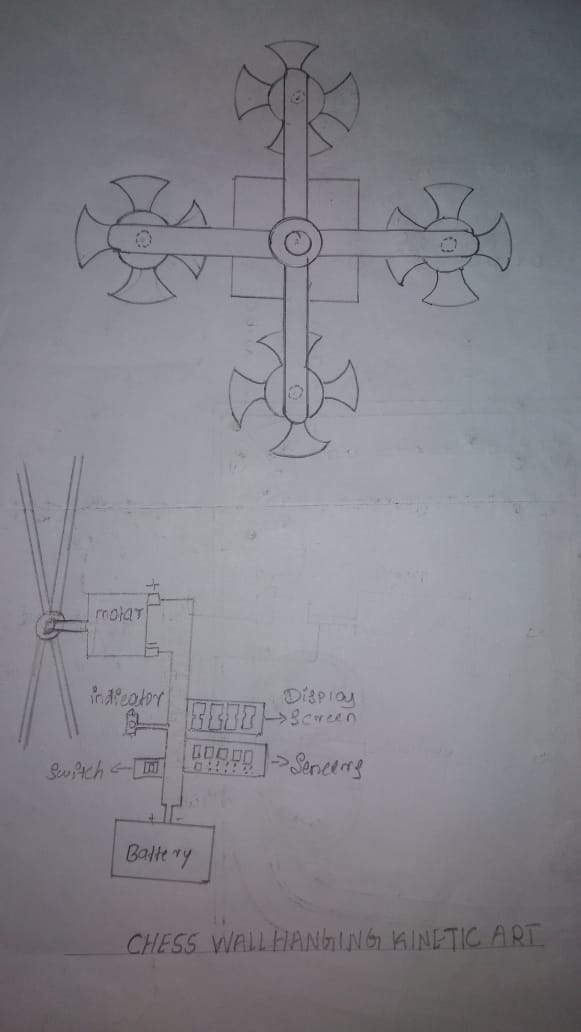 +
motar
-
indicator
8888
Display
Screen
Switch
Sencers
+ -
Battery
CHESS WALL HANGING KINETIC ART